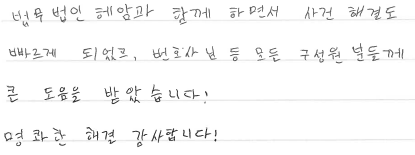 법무법인 혜암과 함께 하면서 사건 해결도
빠르게 되었고, 변호사님 등 모든 구성원 분들께
큰 도움을 받았습니다!
명쾌한 해결 감사합니다!